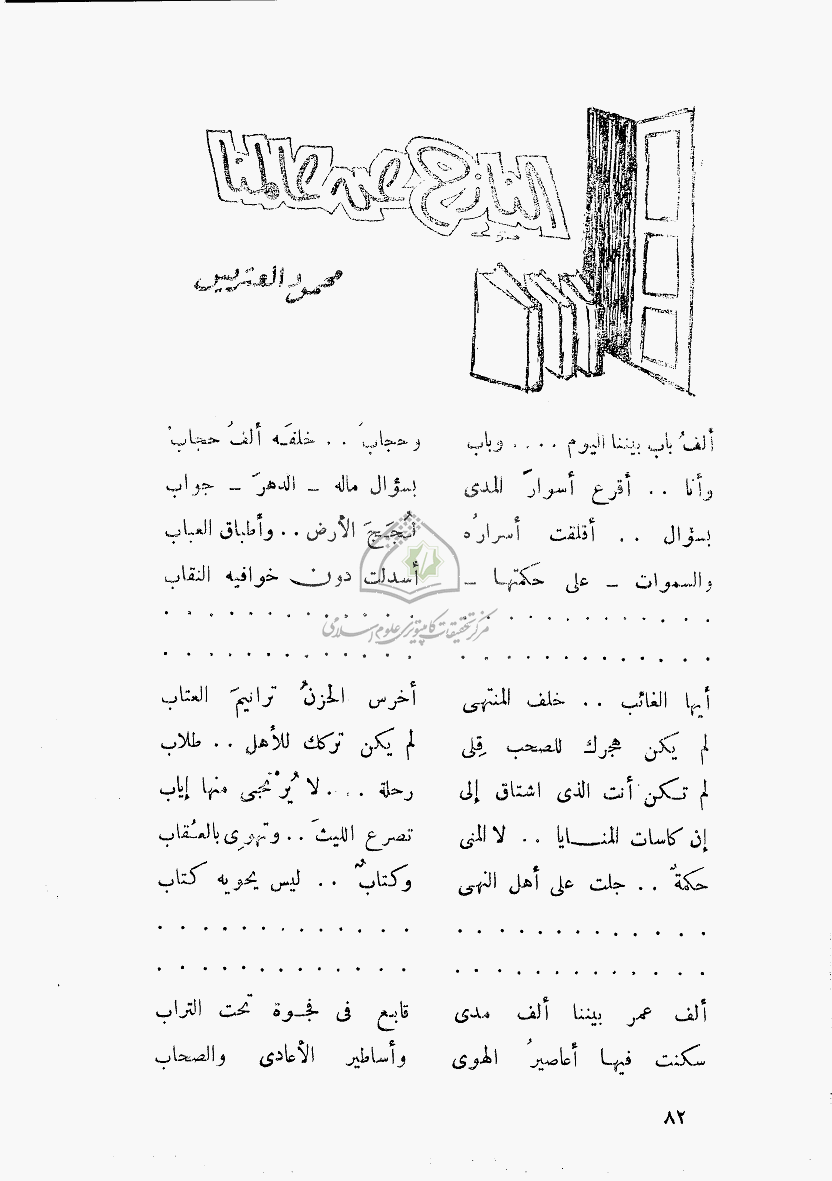 النازح عن عالمنا
محمود العتريس
ألفُ باب بيننا اليوم .... وباب وحجابَ .. خلفَه ألفُ حجابْ
وأنا .. أقرع أسوارَ المدى بسؤال ماله ــ الدهرَ ــ جواب
بسؤال .. أقلقت أسرارُه لُجَجَ الأرض .. وأطباق العباب
والسموات ــ على حكمتها ــ أسدلت دون خوافيه النقاب
. . . . . . . . . . . . . . . . . . . . . . . . .
مركز تحقیقات کامپیوتری علوم اسلامی
. . . . . . . . . . . . . . . . . . . . . . . . .
أيها الغائب .. خلف المنتهى أخرس الحزنُ ترانيمَ العتاب
لم يكن هجرك للصحب قِلى لم يكن تركك للأهل .. طلاب
لم تكن أنت الذى اشتاق إلى رحلة ... لا يُرْتجى منها إياب
إن كاسات المنايا .. لا المنى تصرع الليثَ .. وتهوِى بالعُقاب
حكمةٌ .. جلت على أهل النهى وكتابٌ .. ليس يحويه كتاب
. . . . . . . . . . . . . . . . . . . . . . . . .
. . . . . . . . . . . . . . . . . . . . . . . . .
ألف عمر بيننا ألف مدى قابع فى فجوة تحت التراب
سكنت فيها أعاصيرُ الهوى وأساطير الأعادى والصحاب
٨٢